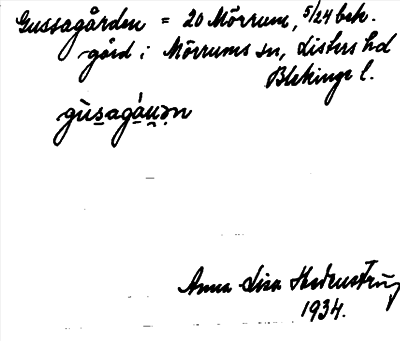 Gussagården = 20 Mörrum, 5/24 beb.
gård i Mörrums sn, Listers hd
Blekinge l.
Anna Lisa
1934.